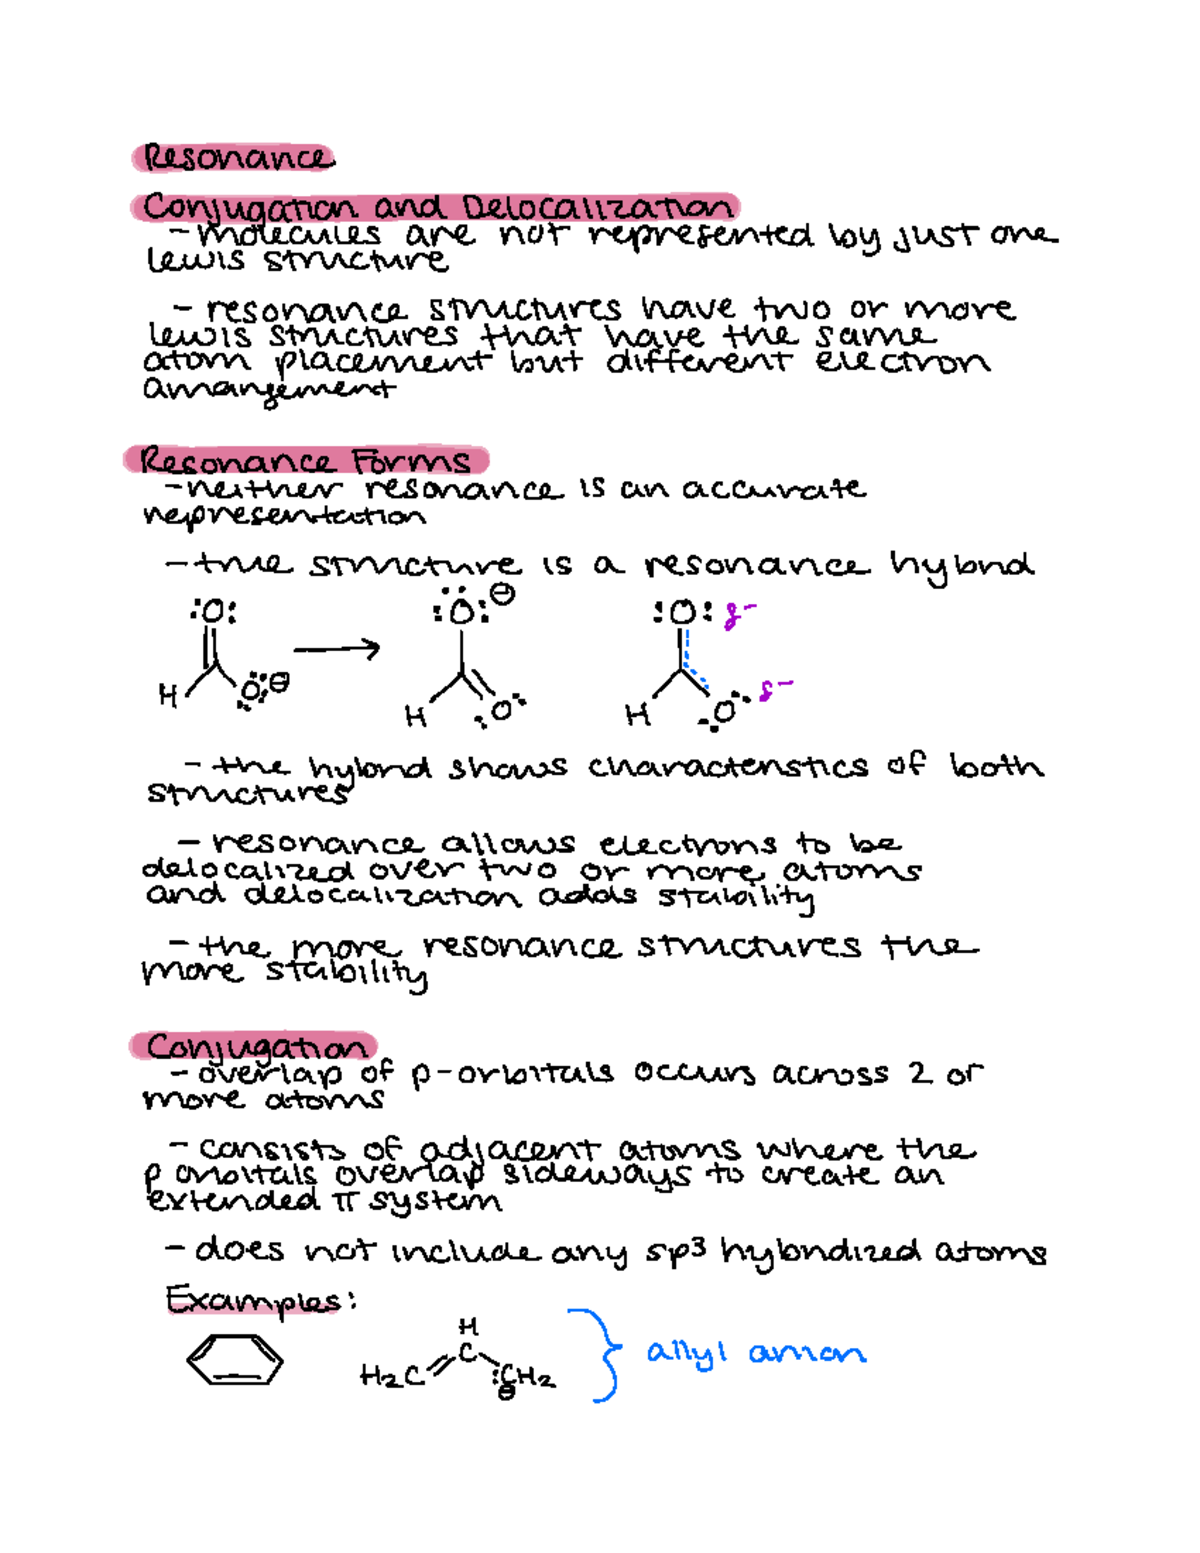 Resonance
Conjugation and Delocalization
- molecules are not represented by just one
lewis structure
- resonance structures have two or more
lewis structures that have the same
atom placement but different electron
arrangement
Resonance Forms
- neither resonance is an accurate
representation
- true structure is a resonance hybrid
:O: :O: ⊖ :O: δ-
H O: ⊖ H O: H O: δ-
- the hybrid shows characteristics of both
structures
- resonance allows electrons to be
delocalized over two or more atoms
and delocalization adds stability
- the more resonance structures the
more stability
Conjugation
- overlap of p-orbitals occurs across 2 or
more atoms
- consists of adjacent atoms where the
p orbitals overlap sideways to create an
extended π system
- does not include any sp³ hybridized atoms
Examples:
H
C
H₂C :CH₂ ⊖ } allyl anion